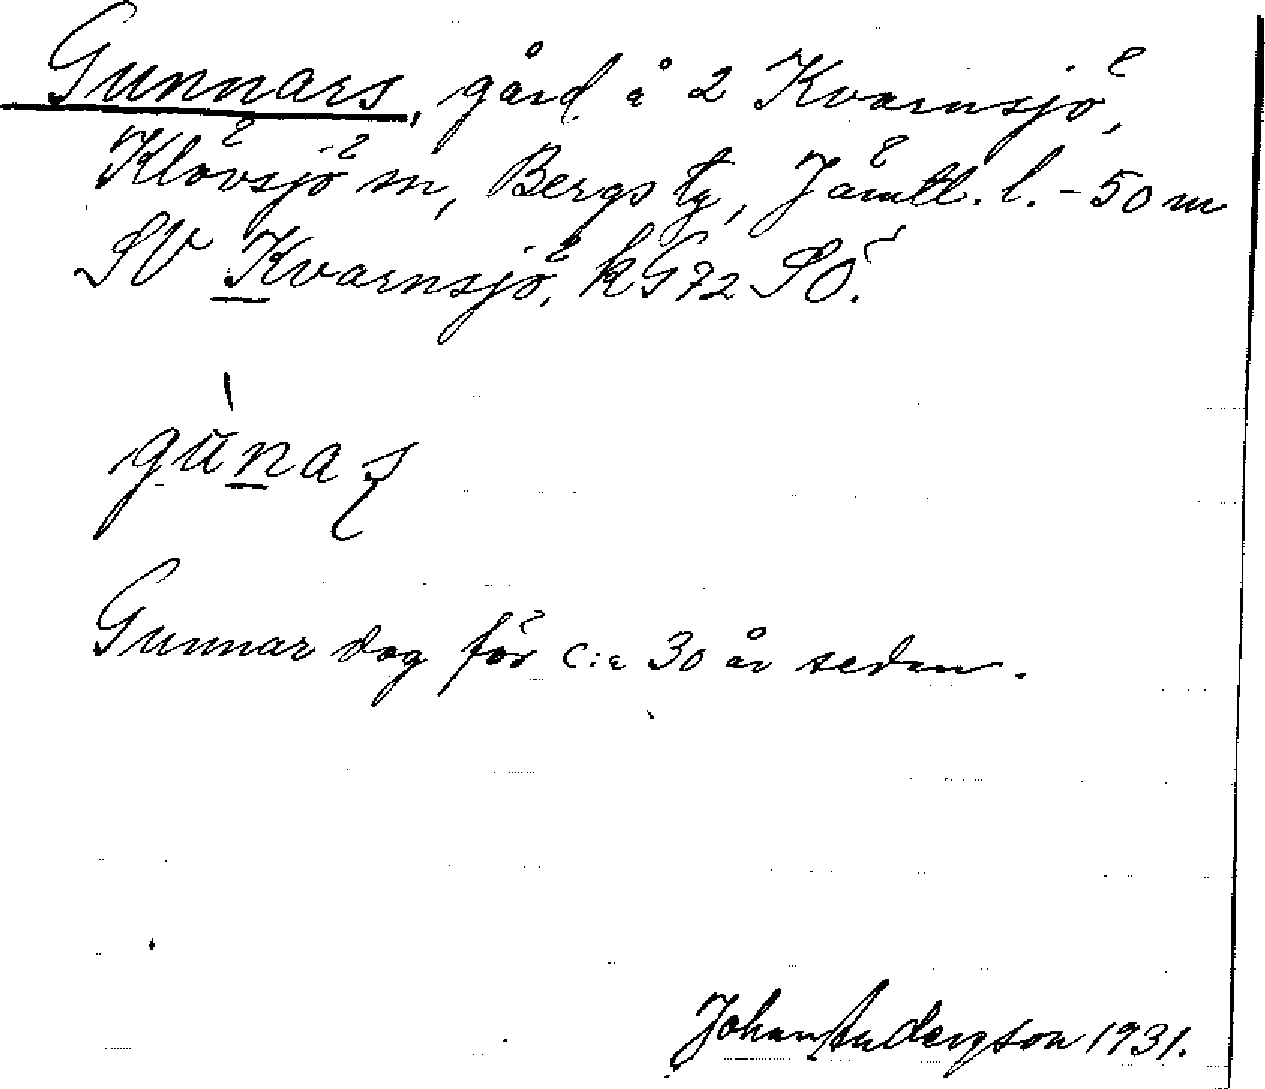 Gunnars, gård å 2 Kvarnsjö,
Klövsjö sn, Bergs tg, Jämtl. l. - 50 m
SV Kvarnsjö, k G 72 SÖ.
gùnaʂ
Gunnar dog för c:a 30 år sedan.
Johan Andersson 1931.